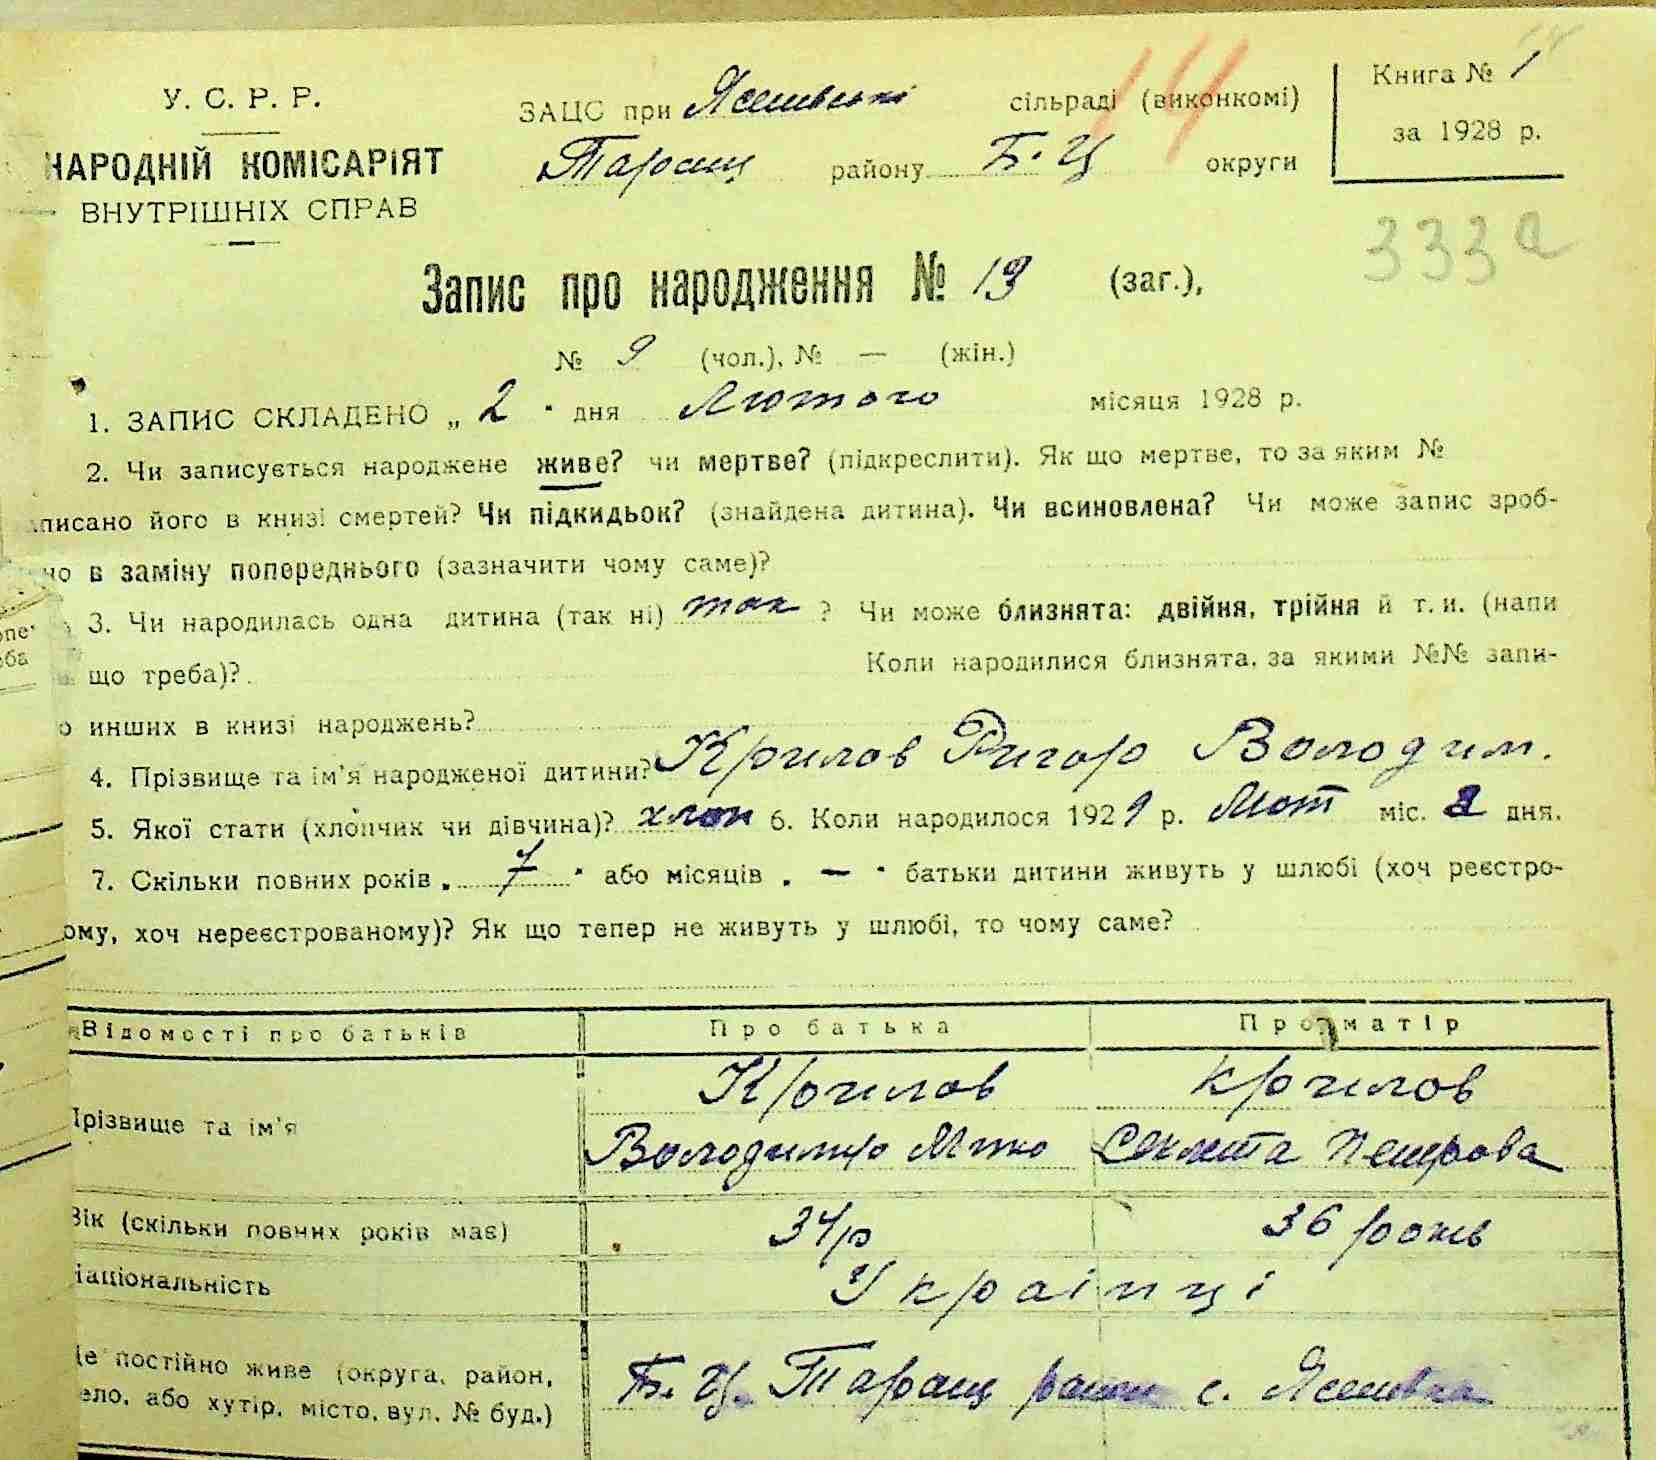 У. С. Р. Р.
НАРОДНІЙ КОМІСАРІЯТ
ВНУТРІШНІХ СПРАВ
ЗАЦС при Ясенівські сільраді (виконкомі)
Таращ району Б. Ц округи
14
Книга № 1
за 1928 р.
333а
Запис про народження № 19 (заг.),
№ 9 (чол.), № — (жін.)
1. ЗАПИС СКЛАДЕНО „ 2 " дня Лютого місяця 1928 р.
2. Чи записується народжене живе? чи мертве? (підкреслити). Як що мертве, то за яким №
писано його в книзі смертей? Чи підкидьок? (знайдена дитина). Чи всиновлена? Чи може запис зроб-
но в заміну попереднього (зазначити чому саме)?
3. Чи народилась одна дитина (так ні) так ? Чи може близнята: двійня, трійня й т. и. (напи
що треба)? Коли народилися близнята, за якими №№ запи-
о инших в книзі народжень?
4. Прізвище та ім'я народженої дитини? Крилов Григор Володим.
5. Якої стати (хлопчик чи дівчина)? хлоп 6. Коли народилося 1929 р. Лют міс. 2 дня.
7. Скільки повних років „ 7 " або місяців „ — " батьки дитини живуть у шлюбі (хоч реєстро-
ому, хоч нереєстрованому)? Як що тепер не живуть у шлюбі, то чому саме?
Відомості про батьків Про батька Про матір
Прізвище та ім'я Крилов Крилов
Володимир Петрова
Вік (скільки повних років має) 34 р 36 років
Національність Українці
Де постійно живе (округа, район,
село, або хутір, місто, вул. № буд.) Б. Ц. Таращ район с. Ясенівка